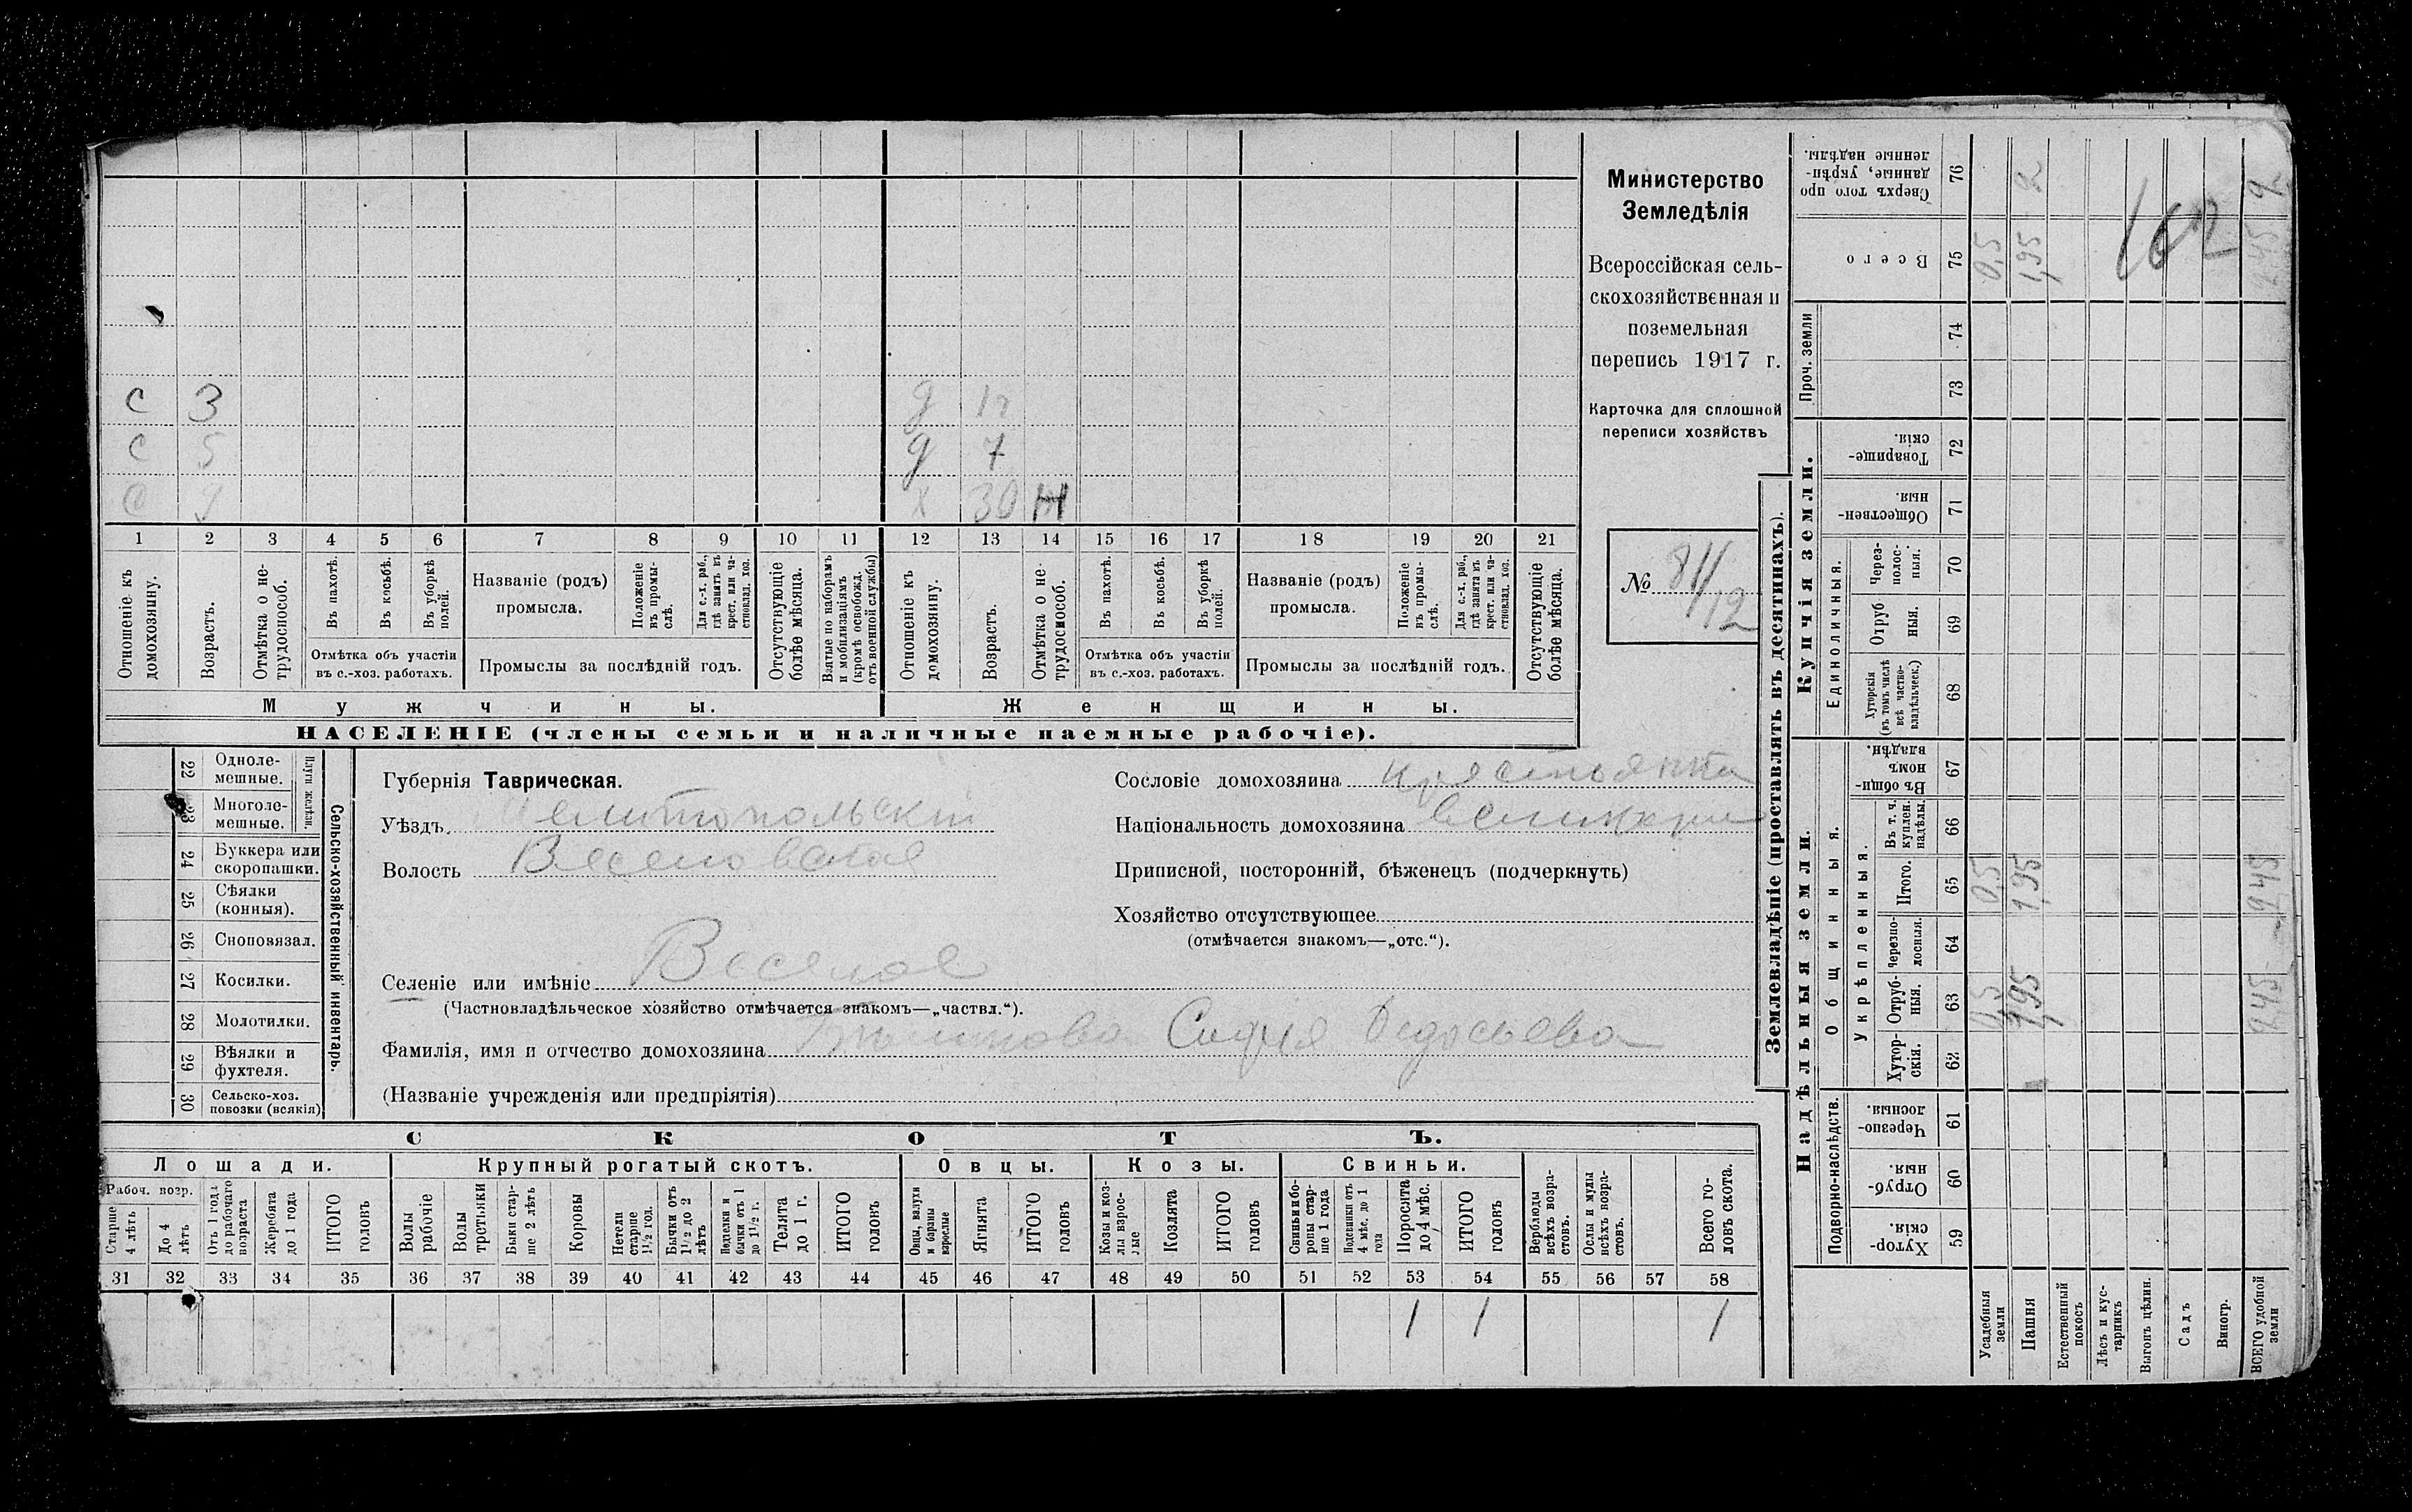 Министерство
Земледѣлія
Всероссійская сель-
скохозяйственная и
поземельная
перепись 1917 г.
Карточка для сплошной
переписи хозяйствъ
№ 81/12
162
с 3 д 12
с 5 д 7
с 9 х 30 Н
1 2 3 4 5 6 7 8 9 10 11 12 13 14 15 16 17 18 19 20 21
Отношеніе къ домохозяину.
Возрастъ.
Отмѣтка о не-трудоспособ.
Въ пахотѣ.
Въ косьбѣ.
Въ уборкѣ полей.
Отмѣтка объ участіи
въ с.-хоз. работахъ.
Названіе (родъ)
промысла.
Положеніе въ промы-слѣ.
Для с.-х. раб., гдѣ занятъ въ крест. или ча-стновлад. хоз.
Промыслы за послѣдній годъ.
Отсутствующіе болѣе мѣсяца.
Взятые по наборамъ и мобилизаціямъ (кромѣ освобожд. отъ военной службы)
Отношеніе къ домохозяину.
Возрастъ.
Отмѣтка о не-трудоспособ.
Въ пахотѣ.
Въ косьбѣ.
Въ уборкѣ полей.
Отмѣтка объ участіи
въ с.-хоз. работахъ.
Названіе (родъ)
промысла.
Положеніе въ промы-слѣ.
Для с.-х. раб., гдѣ занята въ крест. или ча-стновлад. хоз.
Промыслы за послѣдній годъ.
Отсутствующіе болѣе мѣсяца.
Мужчины. Женщины.
НАСЕЛЕНІЕ (члены семьи и наличные наемные рабочіе).
22 Одноле-мешные.
23 Многоле-мешные.
Плуги желѣзн.
24 Буккера или скоропашки.
25 Сѣялки (конныя).
26 Сноповязал.
27 Косилки.
28 Молотилки.
29 Вѣялки и фухтеля.
30 Сельско-хоз. повозки (всякія)
Сельско-хозяйственный инвентарь.
Губернія Таврическая.
Уѣздъ. Мелитопольскій
Волость Веселовская
Селеніе или имѣніе Веселое
(Частновладѣльческое хозяйство отмѣчается знакомъ—„частвл.“).
Фамилія, имя и отчество домохозяина София Федосьева
(Названіе учрежденія или предпріятія)
Сословіе домохозяина крестьянка
Національность домохозяина
Приписной, посторонній, бѣженецъ (подчеркнуть)
Хозяйство отсутствующее
(отмѣчается знакомъ—„отс.“).
СКОТЪ.
Лошади. Крупный рогатый скотъ. Овцы. Козы. Свиньи.
Рабоч. возр.
Старше 4 лѣтъ
До 4 лѣтъ
Отъ 1 года до рабочаго возраста
Жеребята до 1 года
ИТОГО головъ
Волы рабочіе
Волы третьяки
Быки стар-ше 2 лѣтъ
Коровы
Нетели старше 1½ год.
Бычки отъ 1½ до 2 лѣтъ
Надѣлки и бычки отъ 1 до 1½ г.
Телята до 1 г.
ИТОГО головъ
Овцы, валухи и бараны взрослые
Ягнята
ИТОГО головъ
Козы и коз-лы взрос-лые
Козлята
ИТОГО головъ
Свиньи и бо-ровы стар-ше 1 года
Подсвинки отъ 4 мѣс. до 1 года
Поросята до 4 мѣс.
ИТОГО головъ
Верблюды всѣхъ возра-стовъ.
Ослы и мулы всѣхъ возра-стовъ.
Всего го-ловъ скота.
31 32 33 34 35 36 37 38 39 40 41 42 43 44 45 46 47 48 49 50 51 52 53 54 55 56 57 58
1 1 1
Землевладѣніе (проставлять въ десятинахъ).
Купчія земли.
Надѣльныя земли.
Проч. земли
Единоличныя.
Общинныя.
Укрѣпленныя.
Подворно-наслѣдств.
Сверхъ того про-данные, укрѣп-ленные надѣлы. 76 2 2
Всего 75 0,5 1,95 2,45
74
73
Товарище-скія. 72
Обществен-ныя. 71
Через-полос-ныя. 70
Отруб-ныя. 69
Хуторскія (въ томъ числѣ всѣ частно-владѣльческ.) 68
Въ общин-номъ владѣн. 67
Въ т. ч. куплен. надѣлы. 66
Итого. 65 0,5 1,95 2,45
Черезпо-лосныя. 64
Отруб-ныя. 63 0,5 1,95 2,45
Хутор-скія. 62
Черезпо-лосныя. 61
Отруб-ныя. 60
Хутор-скія. 59
Усадебныя земли
Пашня
Естественный покосъ
Лѣсъ и кус-тарникъ
Выгонъ цѣлин.
Садъ
Виногр.
ВСЕГО удобной земли